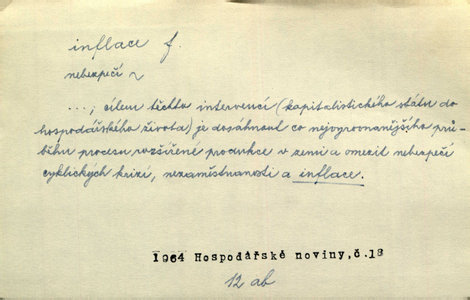 inflace f.
nebezpečí ~
...; cílem těchto intervencí (kapitalistického státu do
hospodářského života) je dosáhnout co nejvyrovnanějšího prů-
běhu procesu rozšířené produkce v zemi a omezit nebezpečí
cyklických krizí, nezaměstnanosti a inflace.
1964 Hospodářské noviny,č.18
12 ab